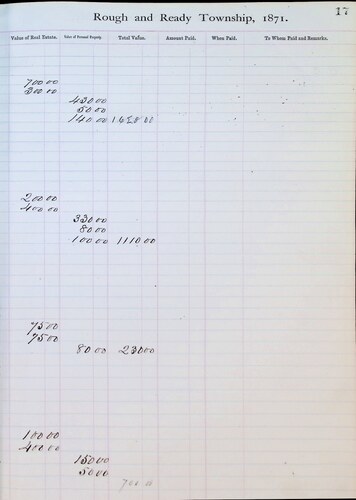 Rough and Ready Township, 1871.
17
Value of Real Estate. Value of Personal Property. Total Value. Amount Paid. When Paid. To Whom Paid and Remarks.
700 00
300 00
430 00
50 00
140 00 1620 00
200 00
400 00
330 00
80 00
100 00 1110 00
75 00
75 00
80 00 230 00
100 00
400 00
150 00
50 00
700 00